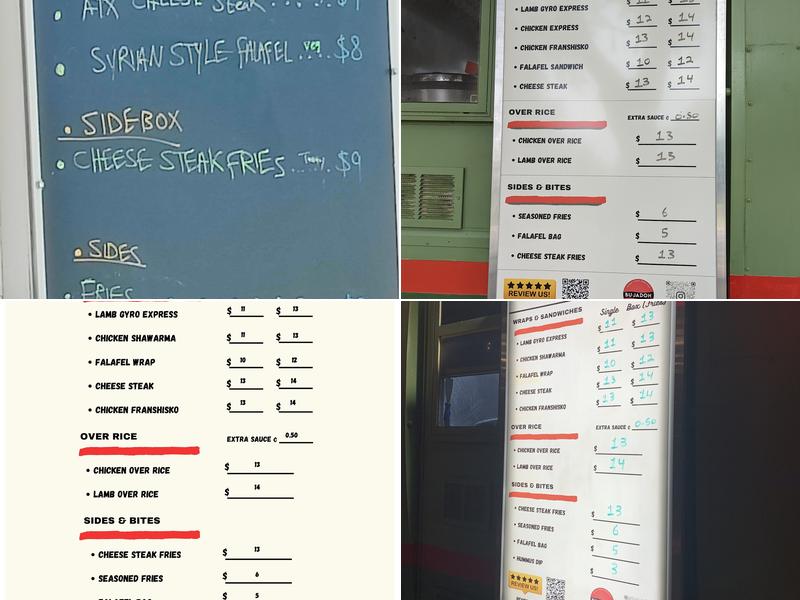 ATX CHEESE Steak
SYRIAN STYLE FALAFEL veg $8
SIDEBOX
CHEESE STEAK FRIES $9
SIDES
FRIES
LAMB GYRO EXPRESS
CHICKEN EXPRESS $ 12 $ 14
CHICKEN FRANSHISKO $ 13 $ 14
FALAFEL SANDWICH $ 10 $ 12
CHEESE STEAK $ 13 $ 14
OVER RICE EXTRA SAUCE ¢ 0.50
CHICKEN OVER RICE $ 13
LAMB OVER RICE $ 13
SIDES & BITES
SEASONED FRIES $ 6
FALAFEL BAG $ 5
CHEESE STEAK FRIES $ 13
REVIEW US!
BUJADOH
LAMB GYRO EXPRESS $ 11 $ 13
CHICKEN SHAWARMA $ 11 $ 13
FALAFEL WRAP $ 10 $ 12
CHEESE STEAK $ 13 $ 14
CHICKEN FRANSHISKO $ 13 $ 14
OVER RICE EXTRA SAUCE ¢ 0.50
CHICKEN OVER RICE $ 13
LAMB OVER RICE $ 14
SIDES & BITES
CHEESE STEAK FRIES $ 13
SEASONED FRIES $ 6
FALAFEL BAG $ 5
WRAPS & SANDWICHES Single Box / Fries
LAMB GYRO EXPRESS $ 11 $ 13
CHICKEN SHAWARMA $ 11 $ 13
FALAFEL WRAP $ 10 $ 12
CHEESE STEAK $ 13 $ 14
CHICKEN FRANSHISKO $ 13 $ 14
OVER RICE EXTRA SAUCE ¢ 0.50
CHICKEN OVER RICE $ 13
LAMB OVER RICE $ 14
SIDES & BITES
CHEESE STEAK FRIES $ 13
SEASONED FRIES $ 6
FALAFEL BAG $ 5
HUMMUS DIP $ 3